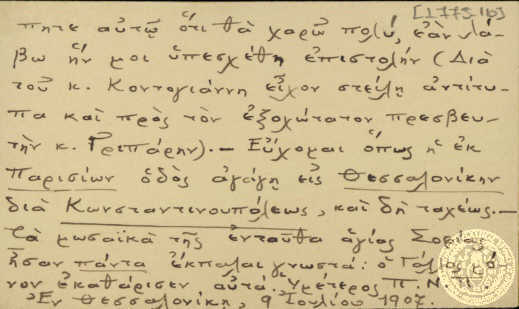 [1775 ιβ]
πητε αὐτῷ ὅτι θὰ χαρῶ πολύ, ἐὰν λά-
βω ἥν μοι ὑπεσχέθη ἐπιστολήν (Διὰ
τοῦ κ. Κοντογιάννη εἶχον στείλῃ ἀντίτυ-
πα καὶ πρὸς τὸν ἐξοχώτατον πρεσβευ-
τὴν κ. Γριπάρην).— Εὔχομαι ὅπως ἡ ἐκ
Παρισίων ὁδὸς ἀγάγῃ εἰς Θεσσαλονίκην
διὰ Κωνσταντινουπόλεως, καὶ δὴ ταχέως.—
Τὰ μωσαϊκὰ τῆς ἐνταῦθα ἁγίας Σοφίας
ἦσαν πάντα ἔκπαλαι γνωστά: ὁ
νον ἐκαθάρισεν αὐτά. Ὑμέτερος Π. Ν.
Ἐν Θεσσαλονίκῃ, 9 Ἰουλίου 1907.